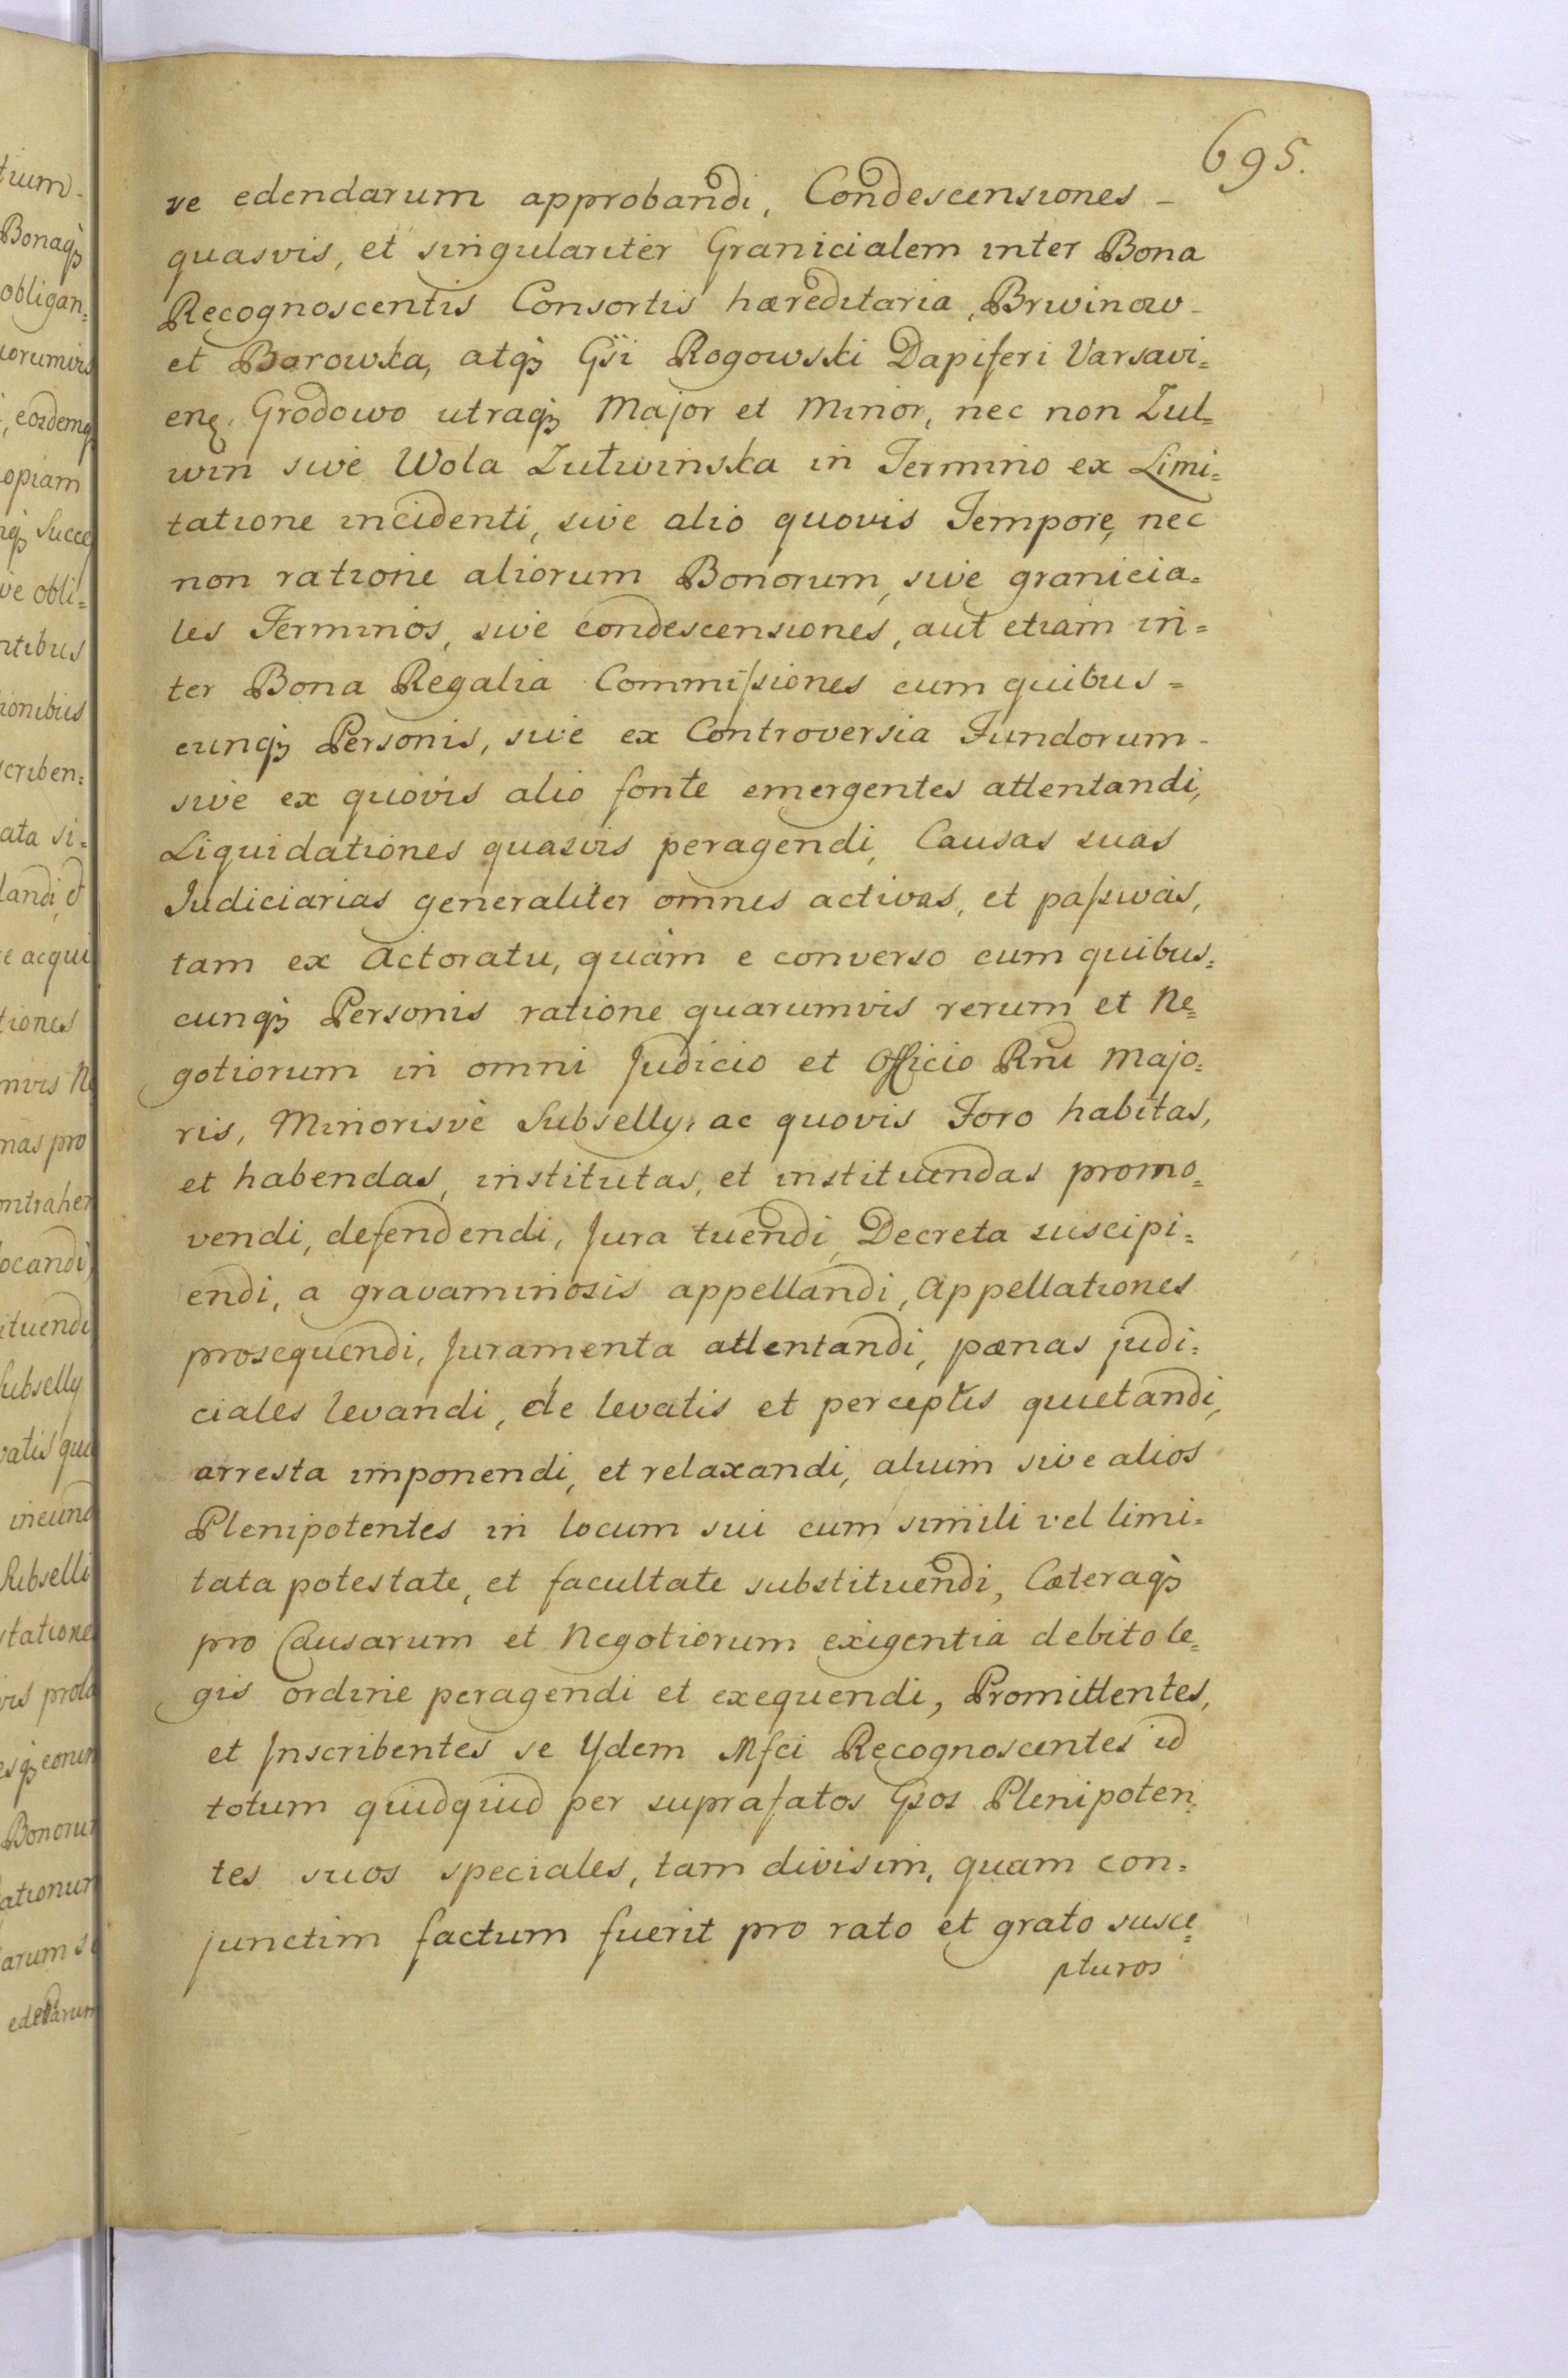 695.
ve edendarum approbandi, Condescensiones -
quasvis, et singulariter Granicialem inter Bona
Recognoscentis Consortis hæreditaria, Brwinow -
et Borowka, atqꝫ Gsi Rogowski Dapiferi Varsavi=
enꝭ. Grodowo utraqꝫ Major et Minor, nec non Zul=
win sive Wola Zutwinska in Termino ex Limi=
tatione incidenti, sive alio quovis Tempore, nec
non ratione aliorum Bonorum, sive granicia=
les Terminos, sive condescensiones, aut etiam in=
ter Bona Regalia Commißiones cum quibus=
cunqꝫ Personis, sive ex Controversia Fundorum -
sive ex quovis alio fonte emergentes attentandi,
Liquidationes quasvis peragendi, Causas suas
Judiciarias generaliter omnes activas, et paßivas,
tam ex Actoratu, quàm e converso cum quibus=
cunqꝫ Personis ratione quarumvis rerum et Ne=
gotiorum in omni Judicio et Officio Rni Majo=
ris, Minorisvè Subselly, ac quovis Foro habitas,
et habendas, institutas, et instituendas promo=
vendi, defendendi, Jura tuendi, Decreta suscipi=
endi, a gravaminosis appellandi, Appellationes
prosequendi, Juramenta attentandi, pænas judi=
ciales levandi, de levatis et perceptis quietandi,
arresta imponendi, et relaxandi, alium sive alios
Plenipotentes in locum sui cum simili vel limi=
tata potestate, et facultate substituendi, Cæteraqꝫ
pro Causarum et Negotiorum exigentia debito le=
gis ordine peragendi et exequendi, Promittentes,
et Inscribentes se Ydem Mfci Recognoscentes id
totum quidquid per suprafatos Gsos Plenipoten=
tes suos speciales, tam divisim, quam con=
junctim factum fuerit pro rato et grato susce=
pturos